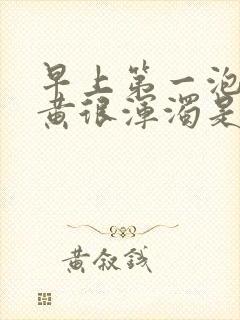 早上第一泡
黄很浑浊是
黄叙钱